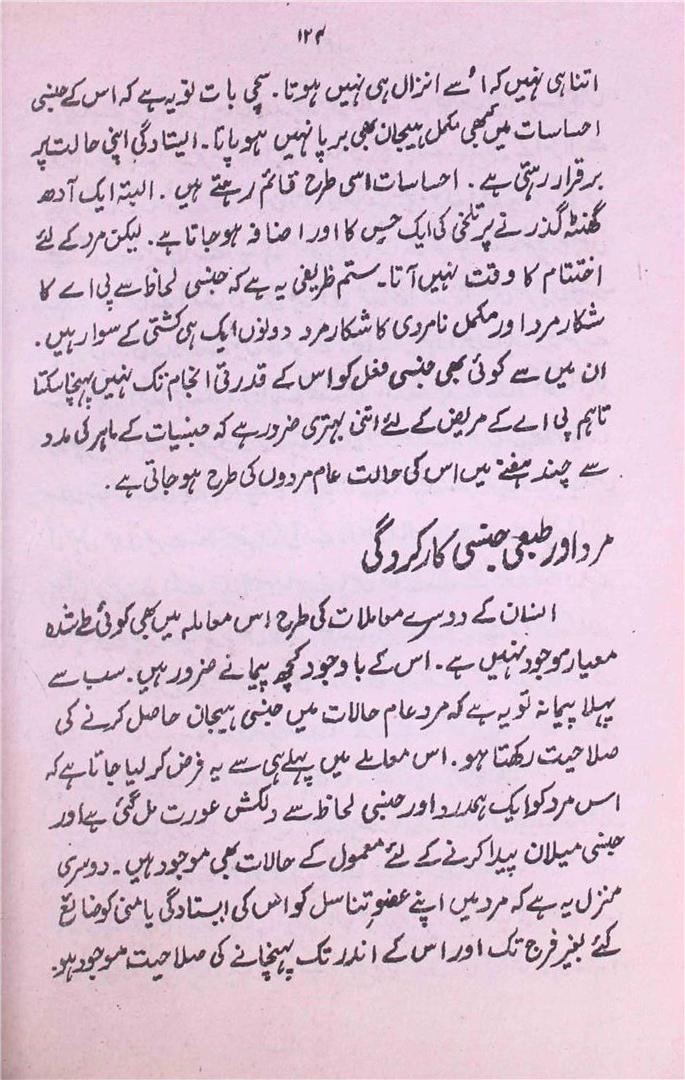 ۱۲۴
اتنا ہی نہیں کہ اُسے انزال ہی نہیں ہوتا۔ سچی بات تو یہ ہے کہ اس کے جنسی
احساسات میں کبھی مکمل ہیجان بھی برپا نہیں ہو پاتا۔ ایستادگی اپنی حالت پر
برقرار رہتی ہے۔ احساسات اسی طرح قائم رہتے ہیں۔ البتہ ایک آدھ
گھنٹہ گذرنے پر تلخی کی ایک حِس کا اور اضافہ ہو جاتا ہے۔ لیکن مرد کے لئے
اختتام کا وقت نہیں آتا۔ ستم ظریفی یہ ہے کہ جنسی لحاظ سے پی اے کا
شکار مرد اور مکمل نامردی کا شکار مرد دونوں ایک ہی کشتی کے سوار ہیں۔
ان میں سے کوئی بھی جنسی فعل کو اس کے قدرتی انجام تک نہیں پہنچا سکتا
تاہم پی اے کے مریض کے لئے اتنی بہتری ضرور ہے کہ جنسیات کے ماہر کی مدد
سے چند ہفتے میں اس کی حالت عام مردوں کی طرح ہو جاتی ہے۔
مرد اور طبعی جنسی کارکردگی
انسان کے دوسرے معاملات کی طرح اس معاملہ میں بھی کوئی طے شدہ
معیار موجود نہیں ہے۔ اس کے باوجود کچھ پیمانے ضرور ہیں۔ سب سے
پہلا پیمانہ تو یہ ہے کہ مرد عام حالات میں جنسی ہیجان حاصل کرنے کی
صلاحیت رکھتا ہو۔ اس معاملے میں پہلے ہی سے یہ فرض کر لیا جاتا ہے کہ
اس مرد کو ایک ہمدرد اور جنسی لحاظ سے دلکش عورت مل گئی ہے اور
جنسی میلان پیدا کرنے کے لئے معمول کے حالات بھی موجود ہیں۔ دوسری
منزل یہ ہے کہ مرد میں اپنے عضوِ تناسل کو اس کی ایستادگی یا منی کو ضائع
کئے بغیر فرج تک اور اس کے اندر تک پہنچانے کی صلاحیت موجود ہو۔